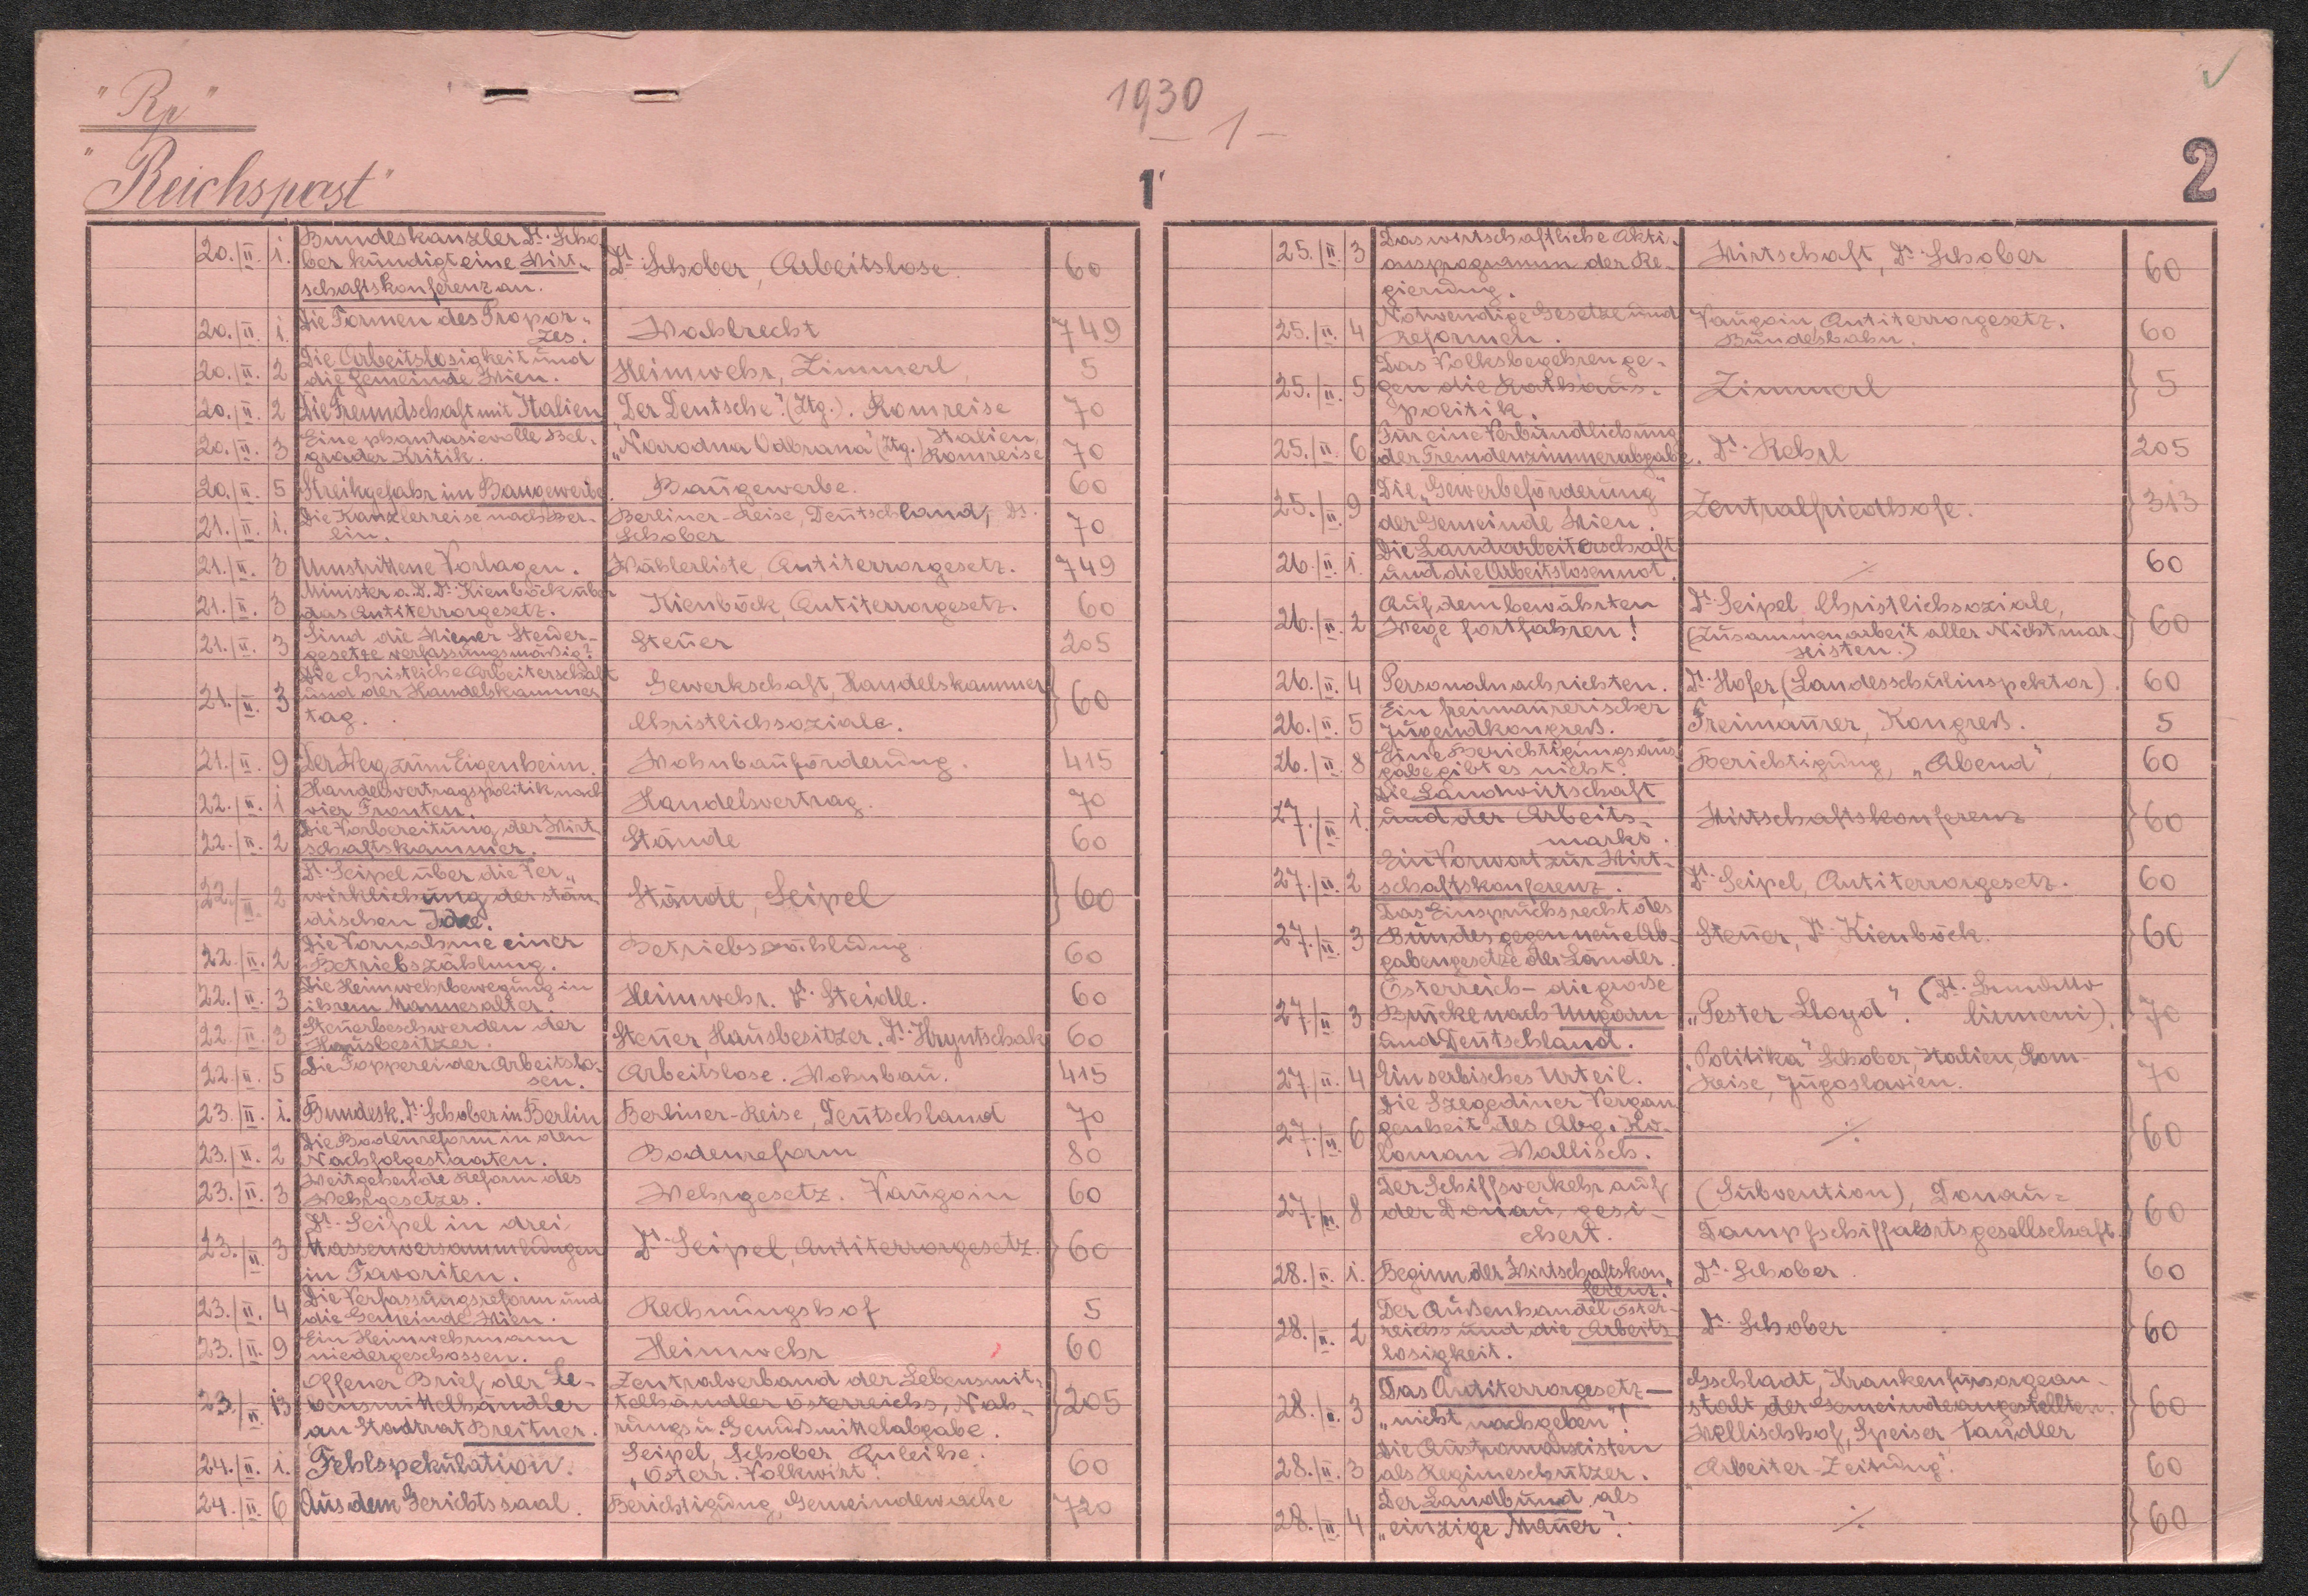 "Rp"
1930
– 1 –
"Reichspost"
1
2
20./II. 1. Bundeskanzler Dr. Scho-
ber kündigt eine Wirt-
schaftskonferenz an. Dr. Schober, Arbeitslose. 60
20./II. 1. Die Formen des Propor-
zes. Wahlrecht 749
20./II. 2 Die Arbeitslosigkeit und
die Gemeinde Wien. Heimwehr, Zimmerl, 5
20./II. 2 Die Freundschaft mit Italien "Der Deutsche". (Ztg.). Romreise 70
20./II. 3 Eine phantasievolle Bel-
grader Kritik. "Narodna Odbrana" (Ztg.) Italien,
Romreise 70
20./II. 5 Streikgefahr im Baugewerbe. Baugewerbe. 60
21./II. 1. Die Kanzlerreise nach Ber-
lin. Berliner-Reise, Deutschland, Dr.
Schober 70
21./II. 3 Umstrittene Vorlagen. Wählerliste, Antiterrorgesetz. 749
21./II. 3 Minister a. D. Dr. Kienböck über
das Antiterrorgesetz. Kienböck, Antiterrorgesetz. 60
21./II. 3 Sind die Wiener Steuer-
gesetze verfassungsmäßig? Steuer 205
21./II. 3 Die christliche Arbeiterschaft
und der Handelskammer
tag. Gewerkschaft, Handelskammer
Christlichsoziale. 60
21./II. 9 Der Weg zum Eigenheim. Wohnbauförderung. 415
22./II. 1 Handelsvertragspolitik nach
vier Fronten. Handelsvertrag. 70
22./II. 2 Die Vorbereitung der Wirt-
schaftskammer. Stände 60
22./II. 2 Dr. Seipel über die Ver-
wirklichung der stän-
dischen Idee. Stände, Seipel 60
22./II. 2 Die Vornahme einer
Betriebszählung. Betriebszählung 60
22./II. 3 Die Heimwehrbewegung in
ihrem Mannesalter. Heimwehr. Dr. Steidle. 60
22./II. 3 Steuerbeschwerden der
Hausbesitzer. Steuer, Hausbesitzer. Dr. Hryntschak 60
22./II. 5 Die Fopperei der Arbeitslo-
sen. Arbeitslose. Wohnbau. 415
23./II. 1. Bundesk. Dr. Schober in Berlin Berliner-Reise, Deutschland 70
23./II. 2 Die Bodenreform in den
Nachfolgestaaten. Bodenreform 80
23./II. 3 Weitgehende Reform des
Wehrgesetzes. Wehrgesetz. Vaugoin 60
23./II. 3 Dr. Seipel in drei
Massenversammlungen
in Favoriten. Dr. Seipel, Antiterrorgesetz. 60
23./II. 4 Die Verfassungsreform und
die Gemeinde Wien. Rechnungshof 5
23./II. 9 Ein Heimwehrmann
niedergeschossen. Heimwehr 60
23./II. 13 Offener Brief der Le-
bensmittelhändler
an Stadtrat Breitner. Zentralverband der Lebensmit-
telhändler Österreichs, Nah-
rungs u. Genußmittelabgabe. 205
24./II. 1. Fehlspekulation. Seipel, Schober, Anleihe.
"Österr. Volkwirt". 60
24./II. 6 Aus dem Gerichtssaal. Berichtigung, Gemeindewache 720
25./II. 3 Das wirtschaftliche Akti-
onsprogramm der Re-
gierung. Wirtschaft, Dr. Schober 60
25./II. 4 Notwendige Gesetze und
Reformen. Vaugoin, Antiterrorgesetz.
Bundesbahn. 60
25./II. 5 Das Volksbegehren ge-
gen die Rathaus-
politik. Zimmerl 5
25./II. 6 Für eine Verbundlichung
der Fremdenzimmerabgabe. Dr. Rehrl 205
25./II. 9 Die "Gewerbeförderung"
der Gemeinde Wien. Zentralfriedhofe. 313
26./II. 1. Die Landarbeiterschaft
und die Arbeitslosennot. ./. 60
26./II. 2 Auf dem bewährten
Wege fortfahren! Dr. Seipel, Christlichsoziale,
(Zusammenarbeit aller Nichtmar-
xisten.) 60
26./II. 4 Personalnachrichten. Dr. Hofer, (Landesschulinspektor). 60
26./II. 5 Ein freimaurerischer
Jugendkongreß. Freimaurer, Kongreß. 5
26./II. 8 Eine Berichtigungsaus-
gabe gibt es nicht. Berichtigung, "Abend", 60
27./II. 1. Die Landwirtschaft
und der Arbeits-
markt. Wirtschaftskonferenz 60
27./II. 2 Ein Vorwort zur Wirt-
schaftskonferenz. Dr. Seipel, Antiterrorgesetz. 60
27./II. 3 Das Einspruchsrecht des
Bundes gegen neue Ab-
gabengesetze der Länder. Steuer, Dr. Kienböck. 60
27./II. 3 Österreich – die große
Brücke nach Ungarn
und Deutschland. "Pester Lloyd". 70
27./II. 4 Ein serbisches Urteil. "Politika" Schober, Italien, Rom-
Reise, Jugoslawien. 70
27./II. 6 Die Szegediner Vergan-
genheit des Abg. Ko-
loman Wallisch. ./. 60
27./II. 8 Der Schiffsverkehr auf
der Donau gesi-
chert. (Subvention), Donau-
Dampfschiffahrtsgesellschaft. 60
28./II. 1. Beginn der Wirtschaftskon-
ferenz. Dr. Schober. 60
28./II. 2 Der Außenhandel Öster-
reichs und die Arbeits-
losigkeit. Dr. Schober 60
28./II. 3 Das Antiterrorgesetz –
"nicht nachgeben"! Gschladt, Krankenfürsorgean-
stalt der Gemeindeangestellten.
Wellischhof, Speiser, Tandler 60
28./II. 3 Die Austromarxisten
als Regimeschützer. "Arbeiter-Zeitung". 60
28./II. 4 Der Landbund als
"einzige Mauer". ./. 60